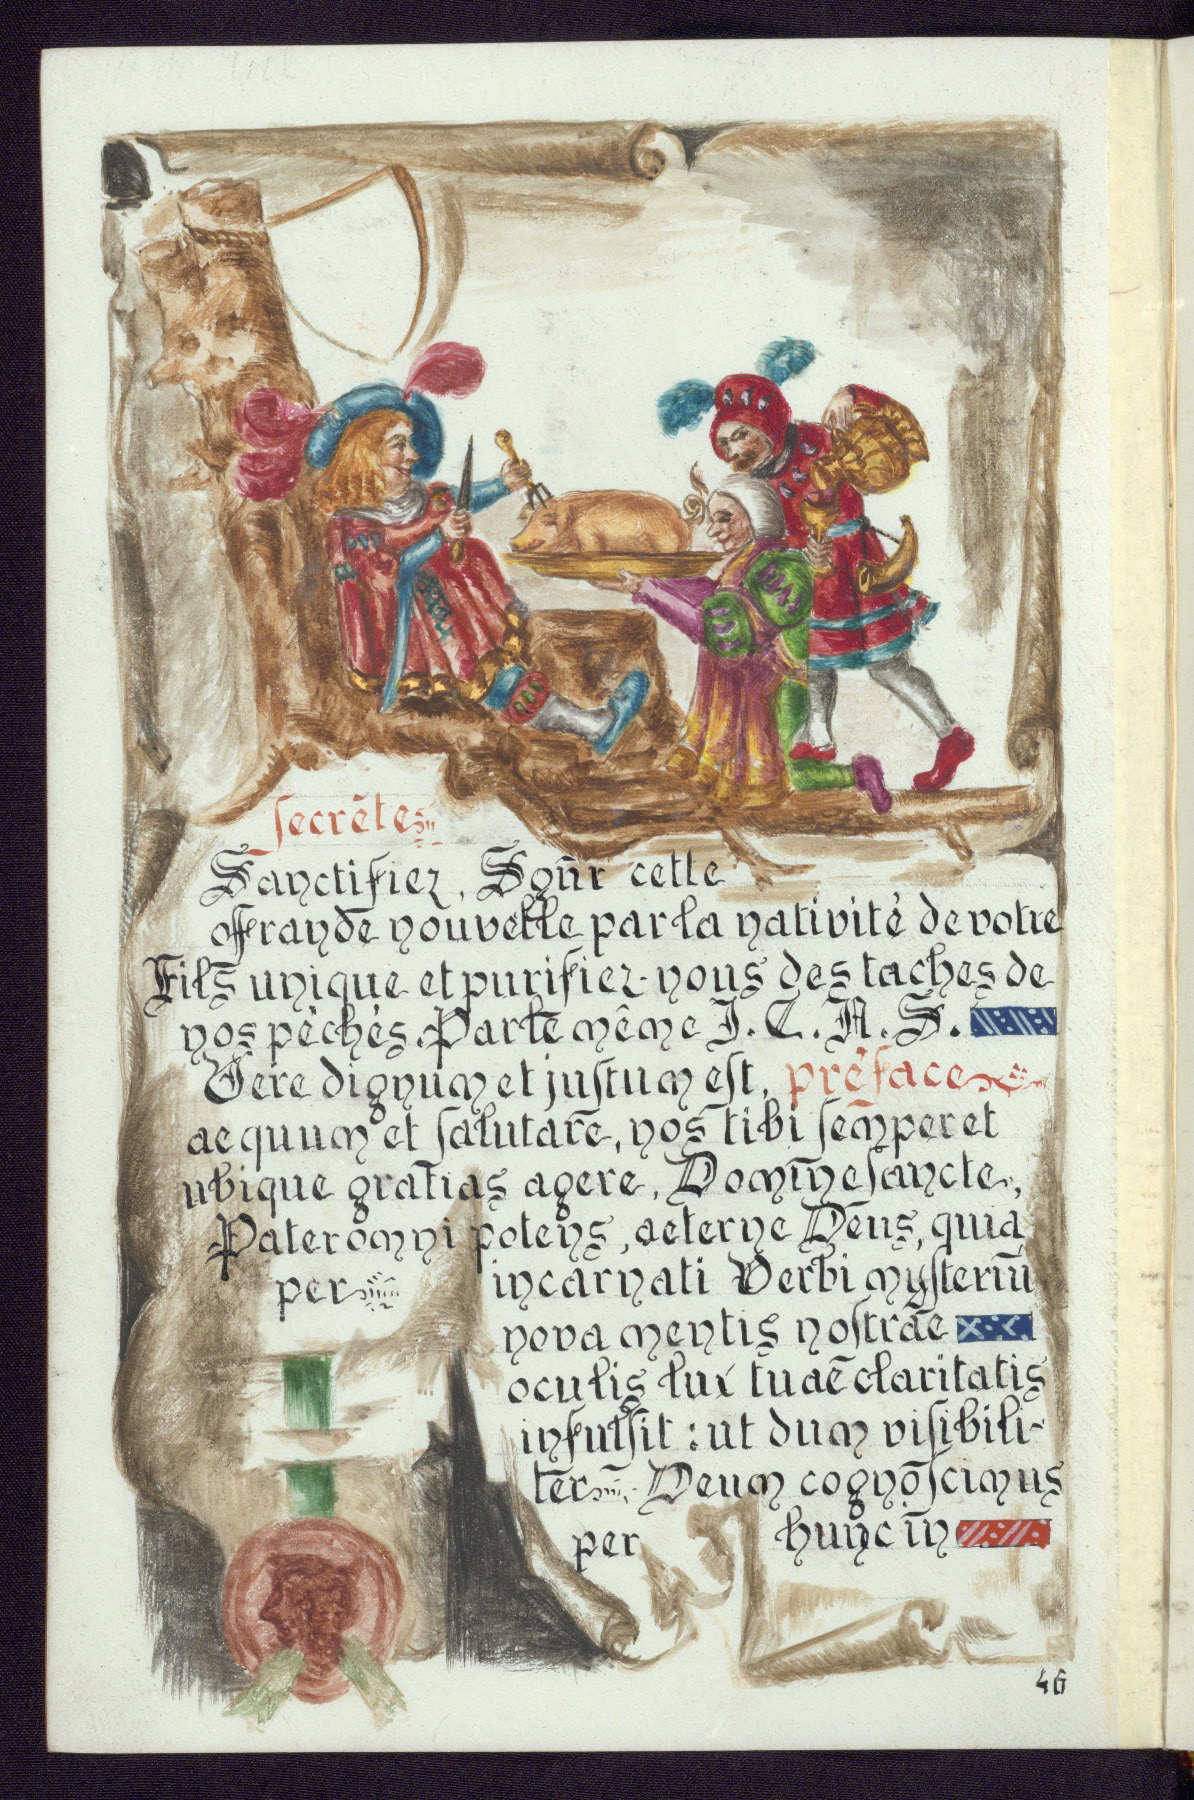 secrète
Sanctifiez, Sgn̄r cette
offrande nouvelle par la nativité de votre
Fils unique et purifiez-nous des taches de
nos péchés. Par le même J. C. N. S.
Vere dignum et justum est, préface
aequum et salutare, nos tibi semper et
ubique gratias agere, Domine sancte,
Pater omnipotens, aeterne Deus, quia
per incarnati Verbi mysteriū
nova mentis nostrae
oculis lux tuae claritatis
infulsit : ut dum visibili-
ter Deum cognoscimus
per hunc in
46